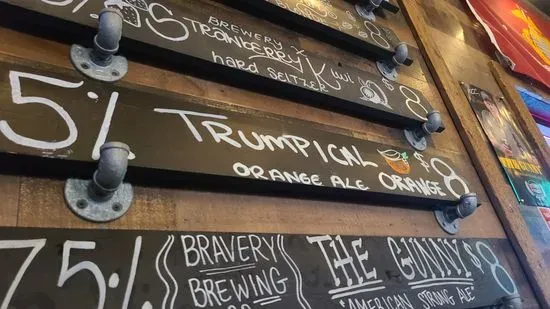 5%
BREWERY
STRAWBERRY KIWI $8
HARD SELTZER
5% TRUMPICAL $8
ORANGE ALE ORANGE
7.5% BRAVERY BREWING THE GUNNY $8
*AMERICAN STRONG ALE